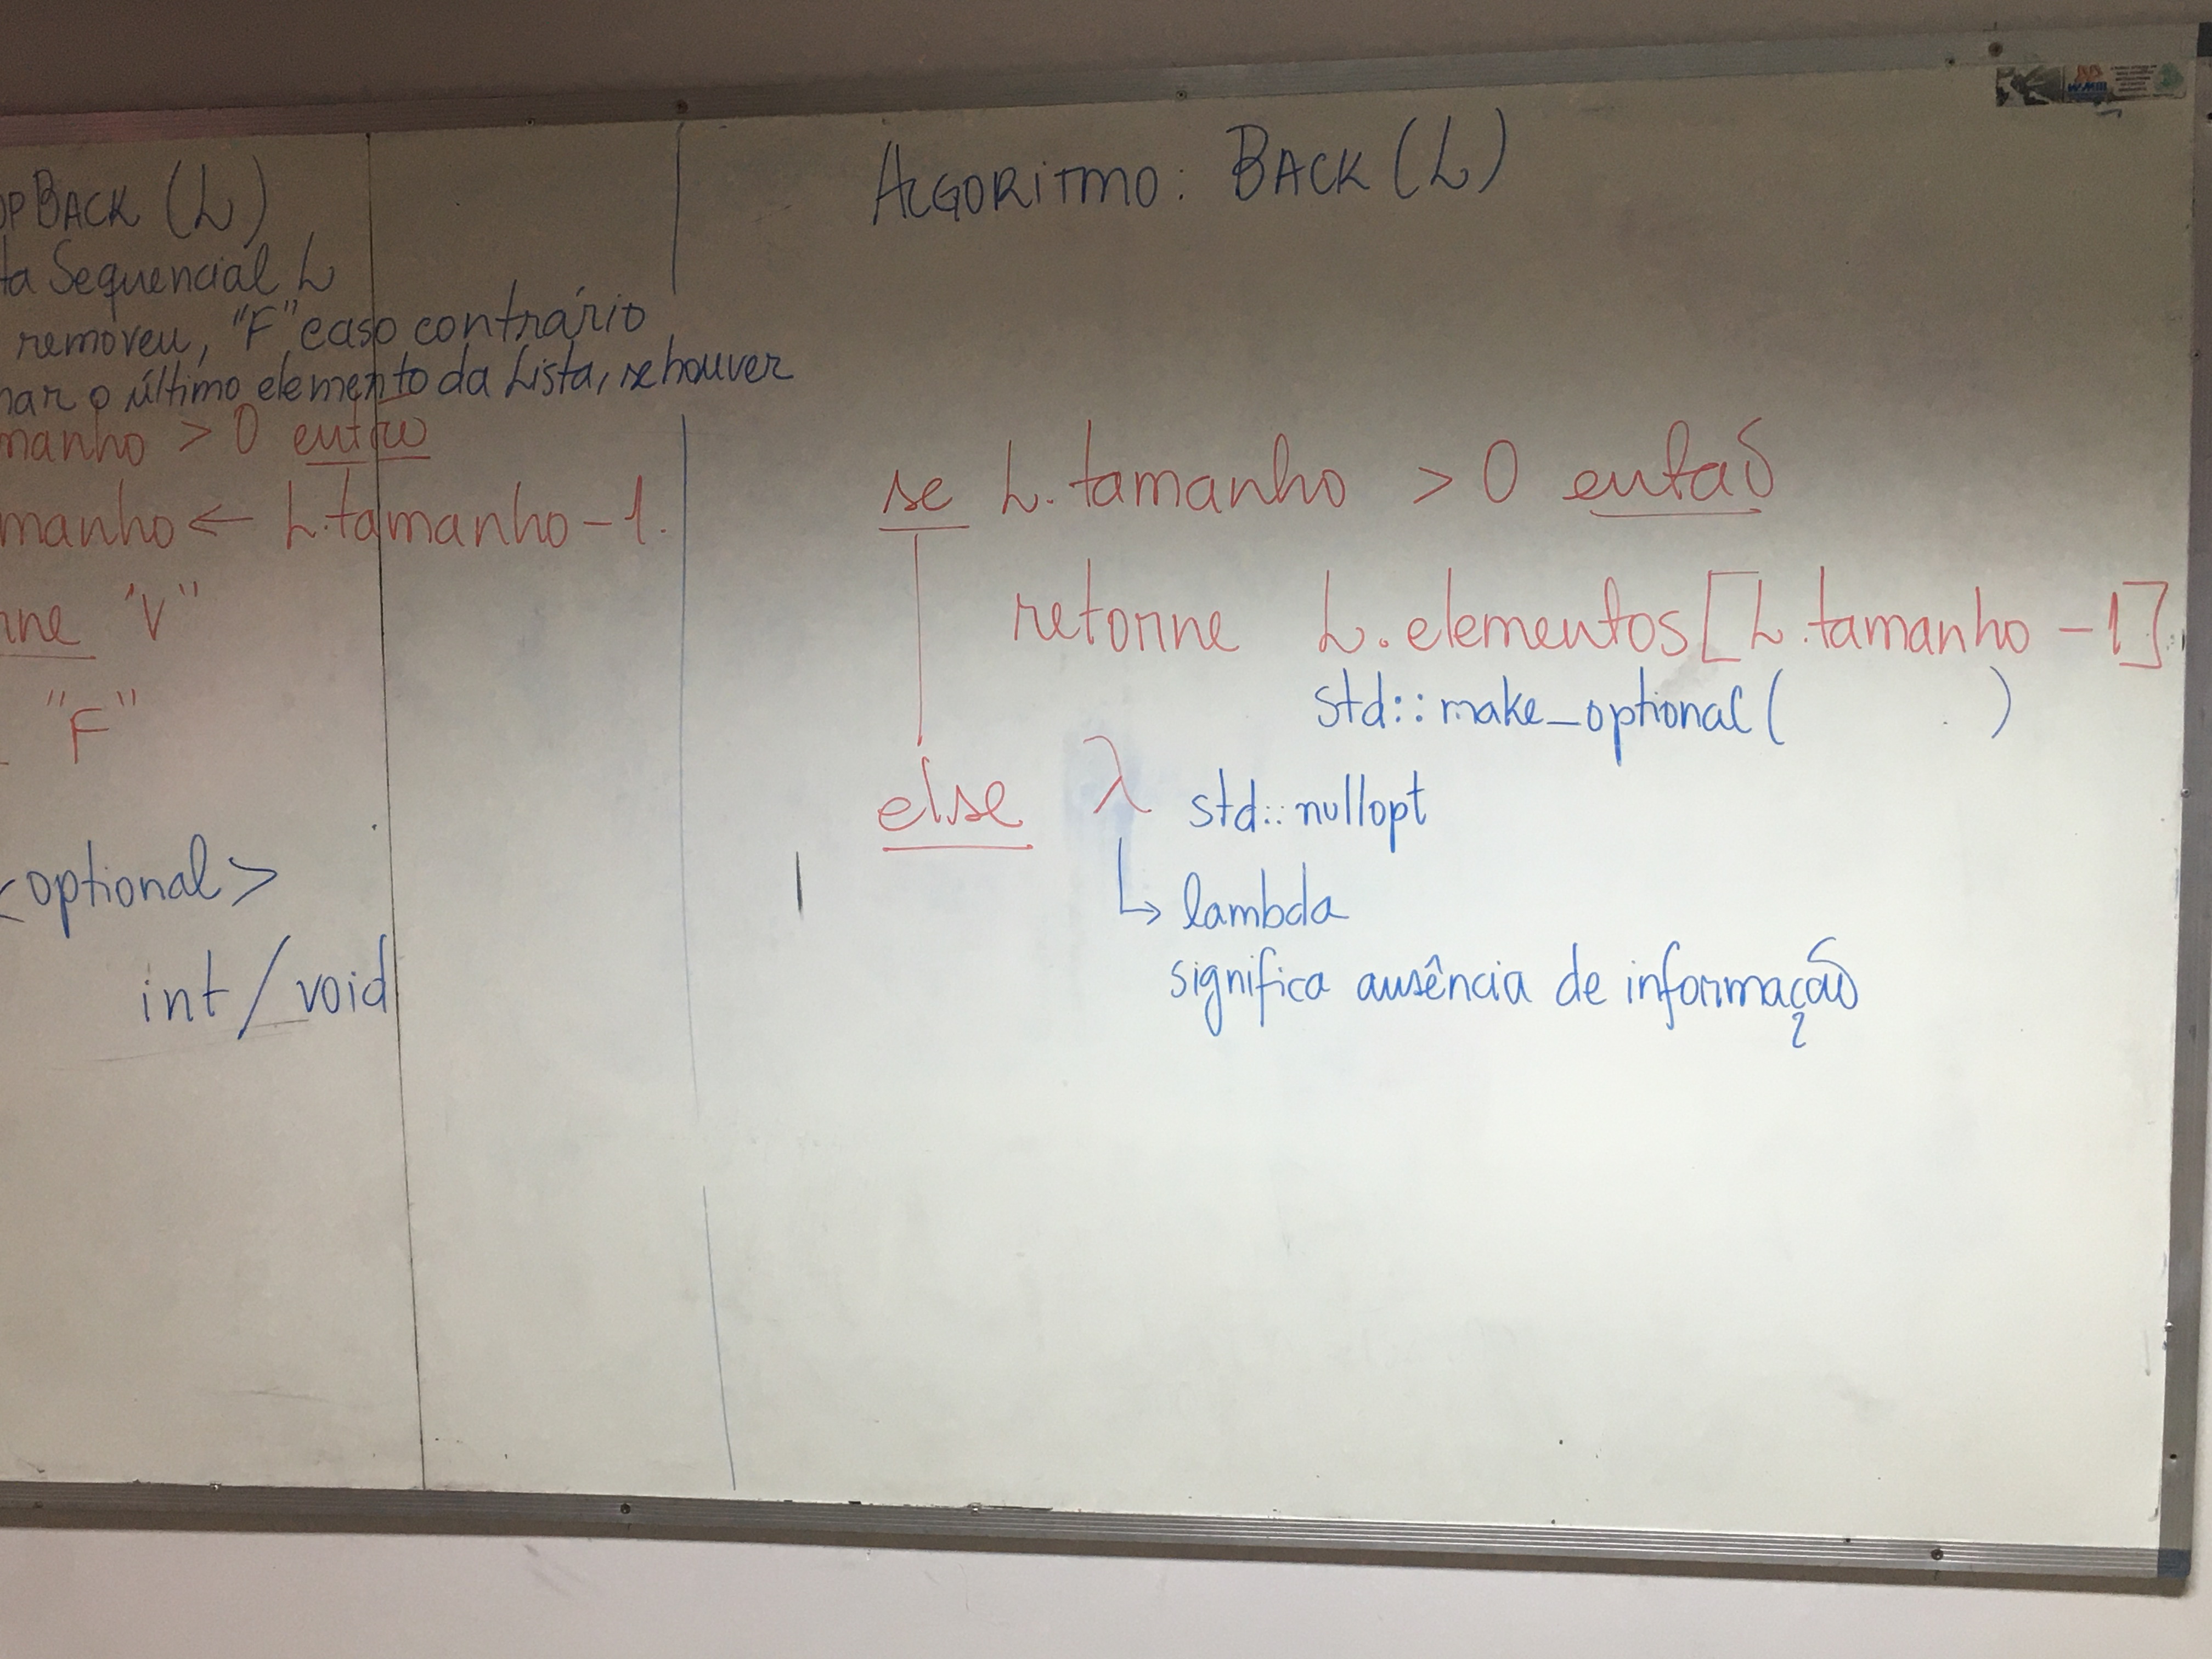 opBACK (L)
ta Sequencial L
removeu, "F" caso contrário
nar o último elemento da Lista, se houver
manho > 0 então
manho ← L.tamanho - 1.
rne "V"
"F"
<optional>
int / void
ALGORITMO: BACK (L)
se L.tamanho > 0 então
retorne L.elementos[L.tamanho - 1].
std::make_optional( )
else λ std::nullopt
↳ lambda
significa ausência de informação